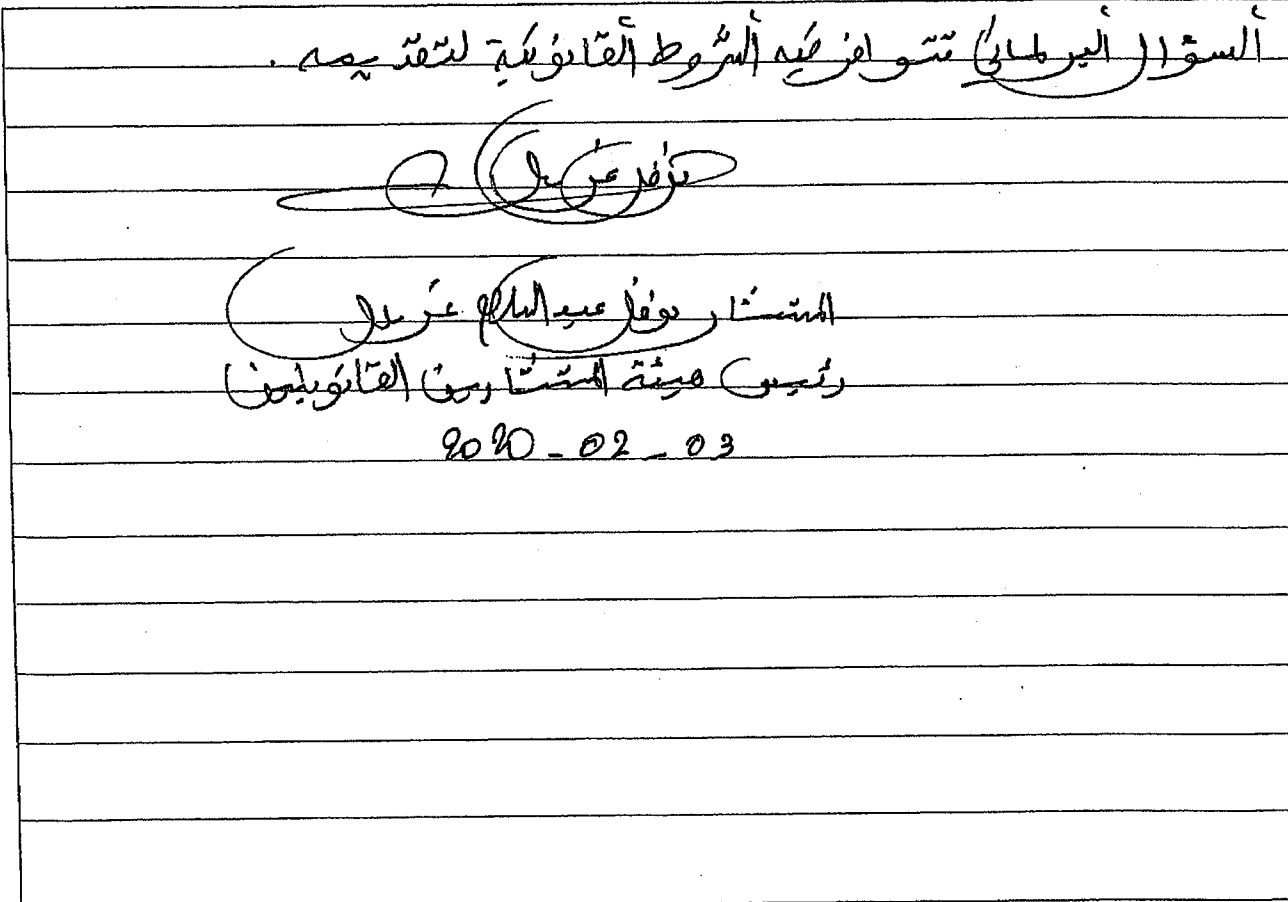 ألسؤال ألبرلماني تتوافر فيه ألشروط ألقانونية لتقديمه .
نوفل
المستشار نوفل عبد السلام غربال
رئيس هيئة المستشارين القانونيين
2020 - 02 - 03